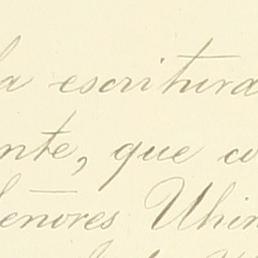 la escritura
nte, que co
Señores Uhin